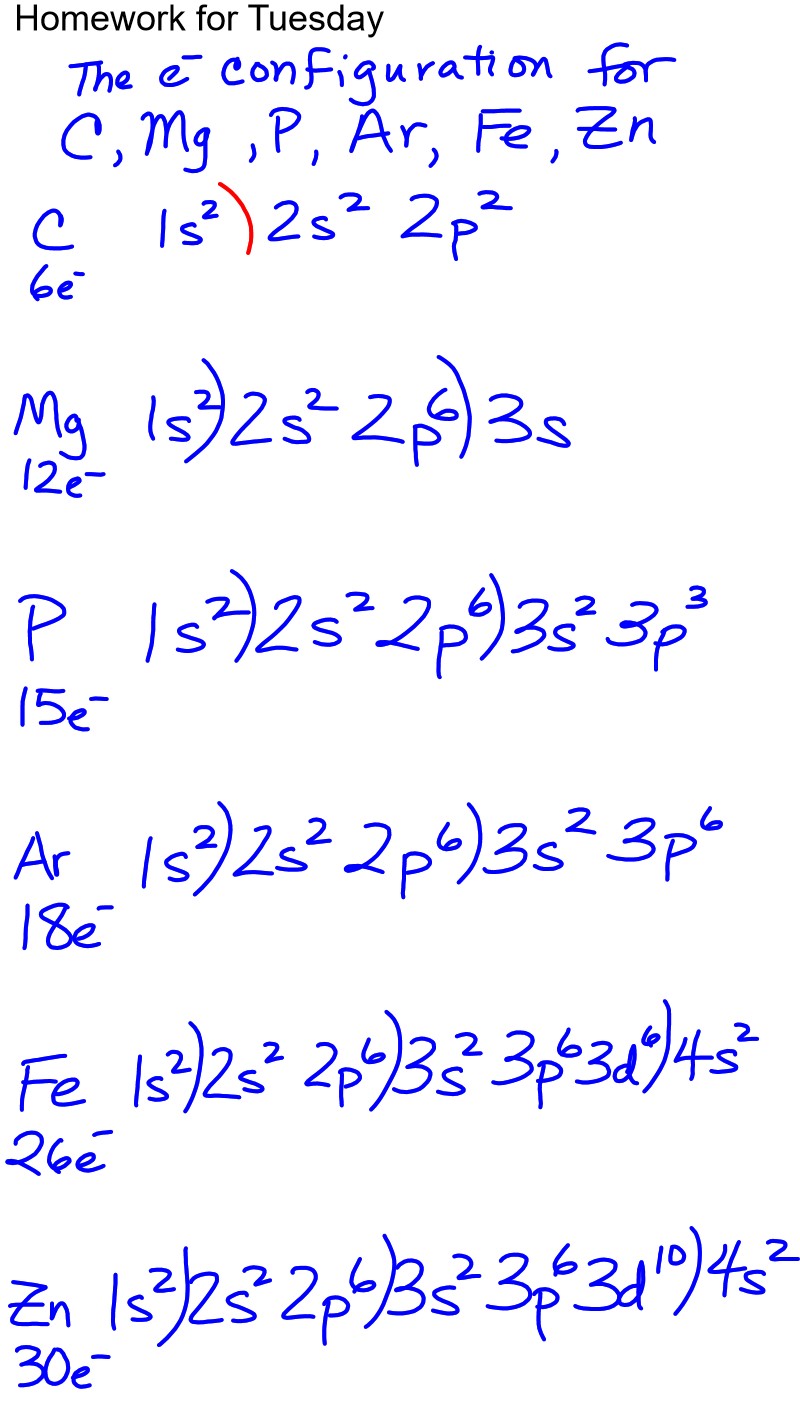 Homework for Tuesday
The e⁻ configuration for
C, Mg, P, Ar, Fe, Zn
C 1s²)2s² 2p²
6e⁻
Mg 1s²)2s² 2p⁶)3s
12e⁻
P 1s²)2s² 2p⁶)3s² 3p³
15e⁻
Ar 1s²)2s² 2p⁶)3s² 3p⁶
18e⁻
Fe 1s²)2s² 2p⁶)3s² 3p⁶3d⁶)4s²
26e⁻
Zn 1s²)2s² 2p⁶)3s² 3p⁶3d¹⁰)4s²
30e⁻